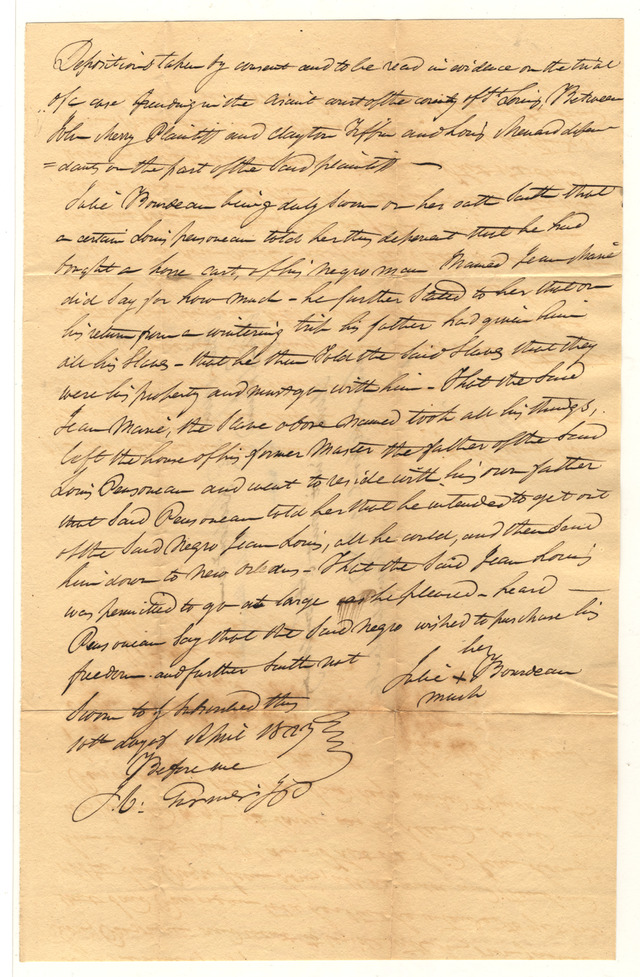 Depositions taken by consent and to be read in evidence on the trial
of a case pending in the circuit court of the county of St Louis, Between
John Merry Plaintiff and Clayton Tiffin and Louis Menard defen
=dants on the part of the said plaintiff —
Julie Bourdeau being duly Sworn on her oath Saith that
a certain Louis Pensoneau told her this deponent that he had
bought a horse cart, of his negro man Named Jean Marie
did Say for how much – he further Stated to her that on
his return from a wintering trip his father had given him
all his Slaves – that he then Told the Said Slaves that they
were his property and must go with him – That the Said
Jean Marie, the Slave above named took all his things,
left the house of his former Master the father of the Said
Louis Pensoneau and went to reside with his own father
that Said Pensoneau told her that he intended to get out
of the Said Negro Jean Louis, all he could, and then Send
him down to New Orleans – That the Said Jean Louis
was permitted to go at large as he pleased – heard —
Pensoneau Say that the Said Negro wished to purchase his
freedom – and further Saith not
her
Julie + Bourdeau
mark
Sworn to & Subscribed this
10th day of April 1827
Before me